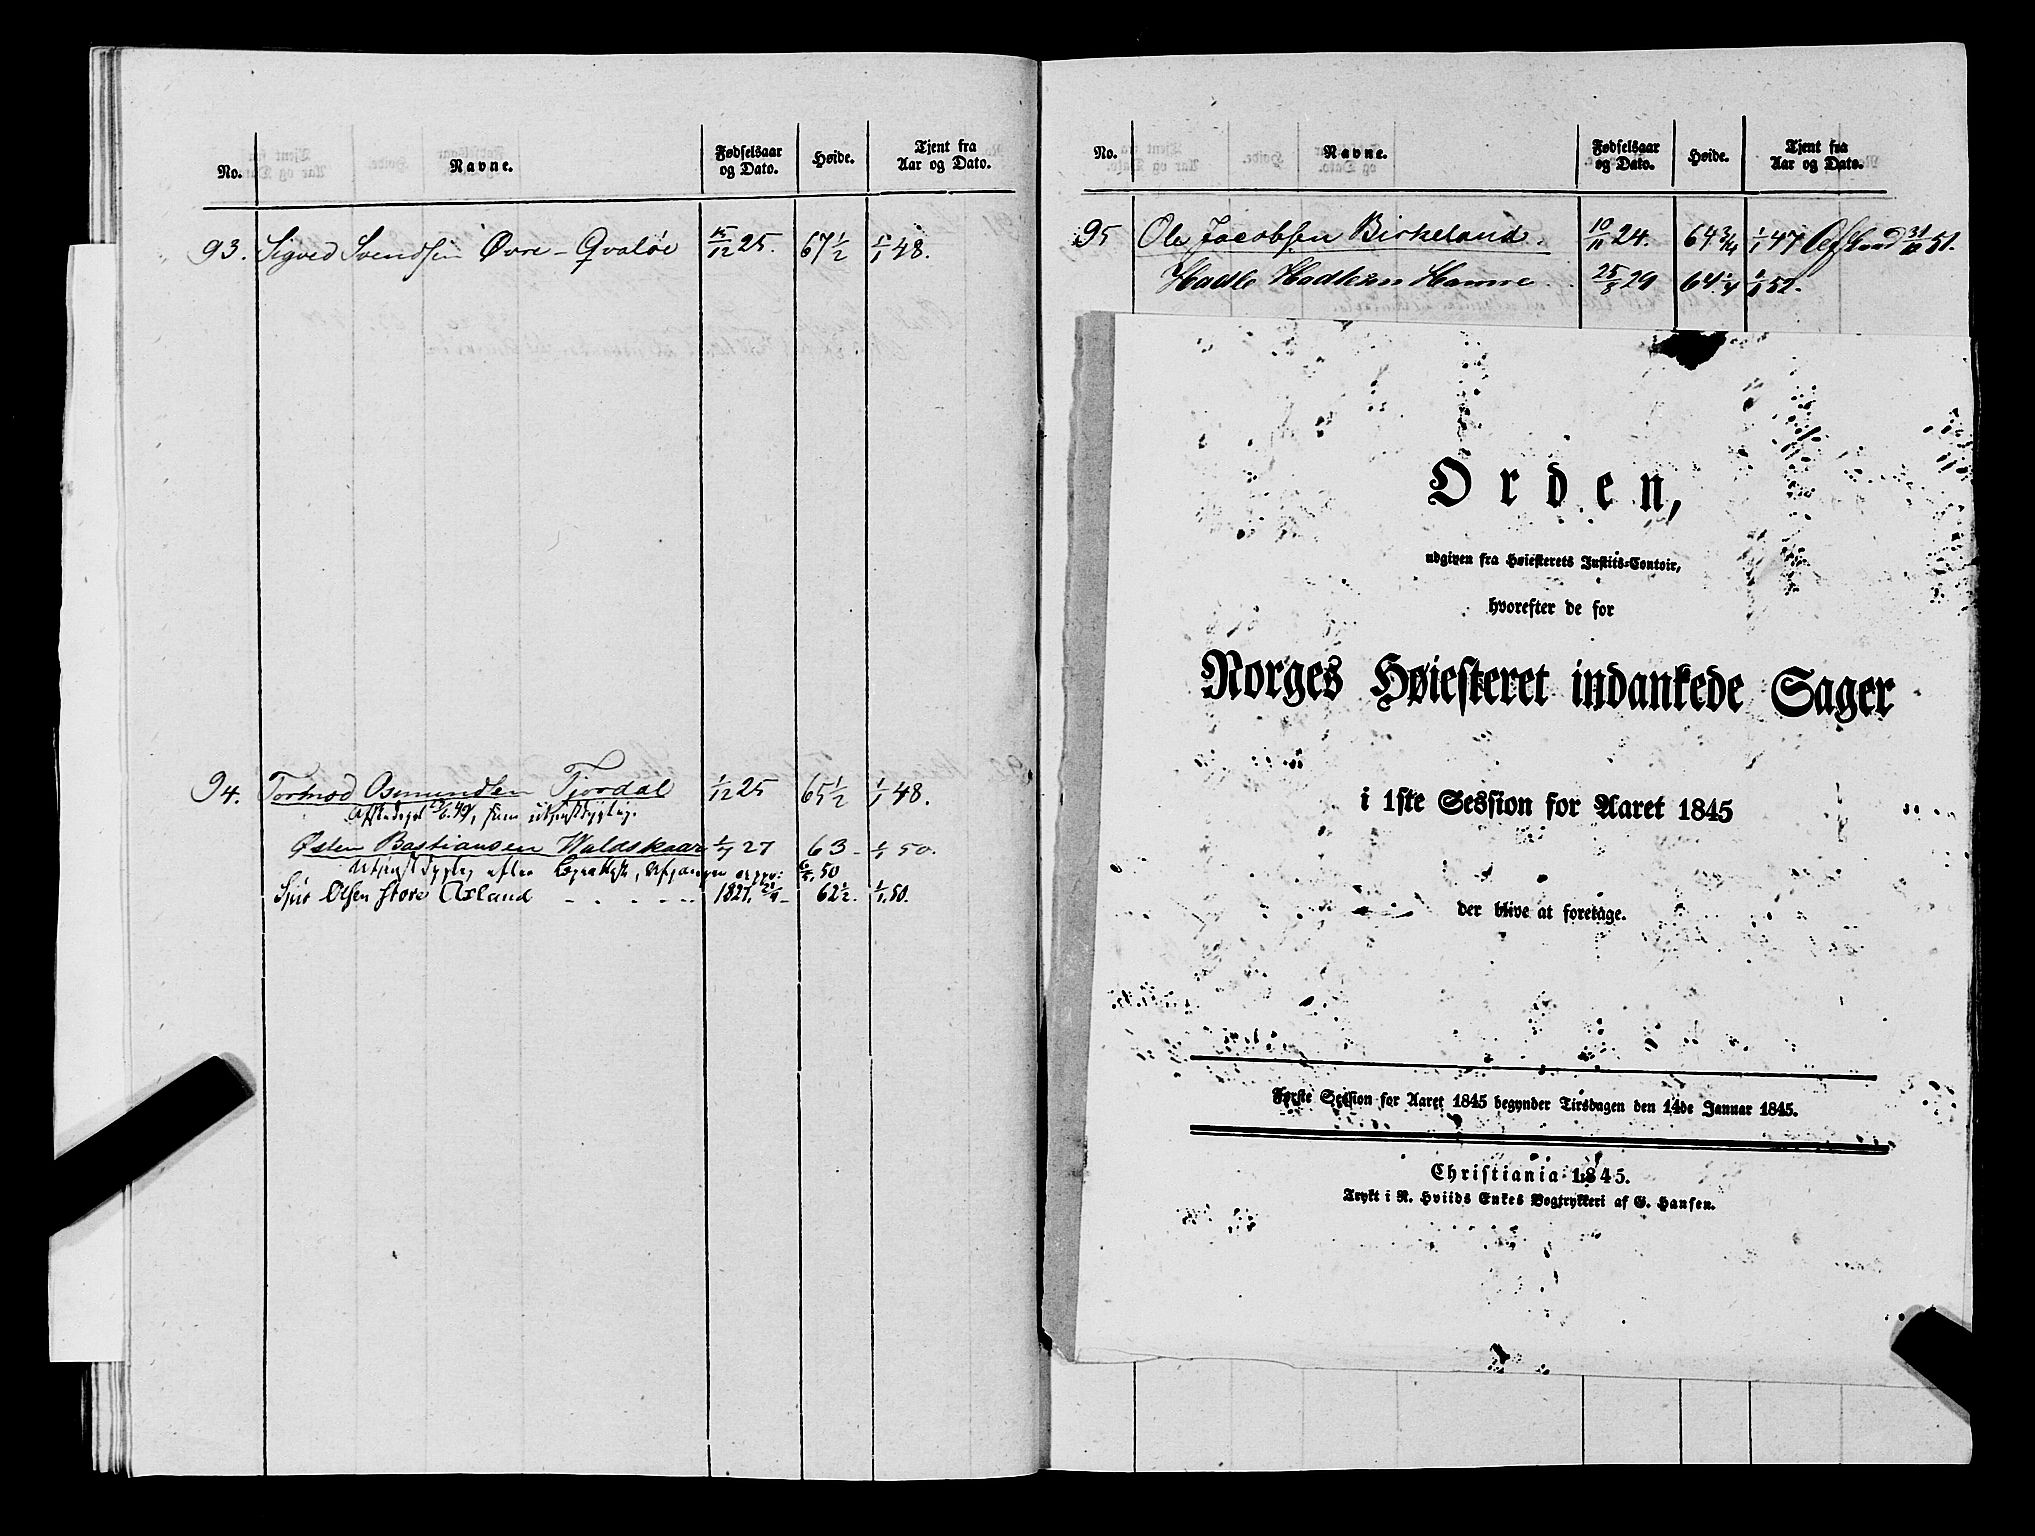 No. Navne. Fødselsaar og Dato. Høide. Tjent fra Aar og Dato.
93. Sigved Svendsen Øvre-Qvaløe 15/12 25. 67 1/2 1/1 48.
94. Tormod Osmundsen Tjordal 1/12 25 65 1/2 1/1 48.
Østen Bastiansen Waldskaar 1/7 27 63 - 1/1 50.
6/4 50
Olsen store Axland - - - - - 1827, 62 1/2. 1/1 50.
No. Navne. Fødselsaar og Dato. Høide. Tjent fra Aar og Dato.
95 Ole Jacobsen Birkeland. 10/11 24. 64 3/4 1/1 47 31/10 51.
Hadle Hadlesen Hamre 25/8 29 64 1/4 1/1 52.
Orden,
udgiven fra Høiesterets Justits-Contoir,
hvorefter de for
Norges Høiesteret indankede Sager
i 1ste Session for Aaret 1845
der blive at foretage.
Første Session for Aaret 1845 begynder Tirsdagen den 14de Januar 1845.
Christiania 1845.
Trykt i R. Hviids Enkes Bogtrykkeri af G. Hansen.